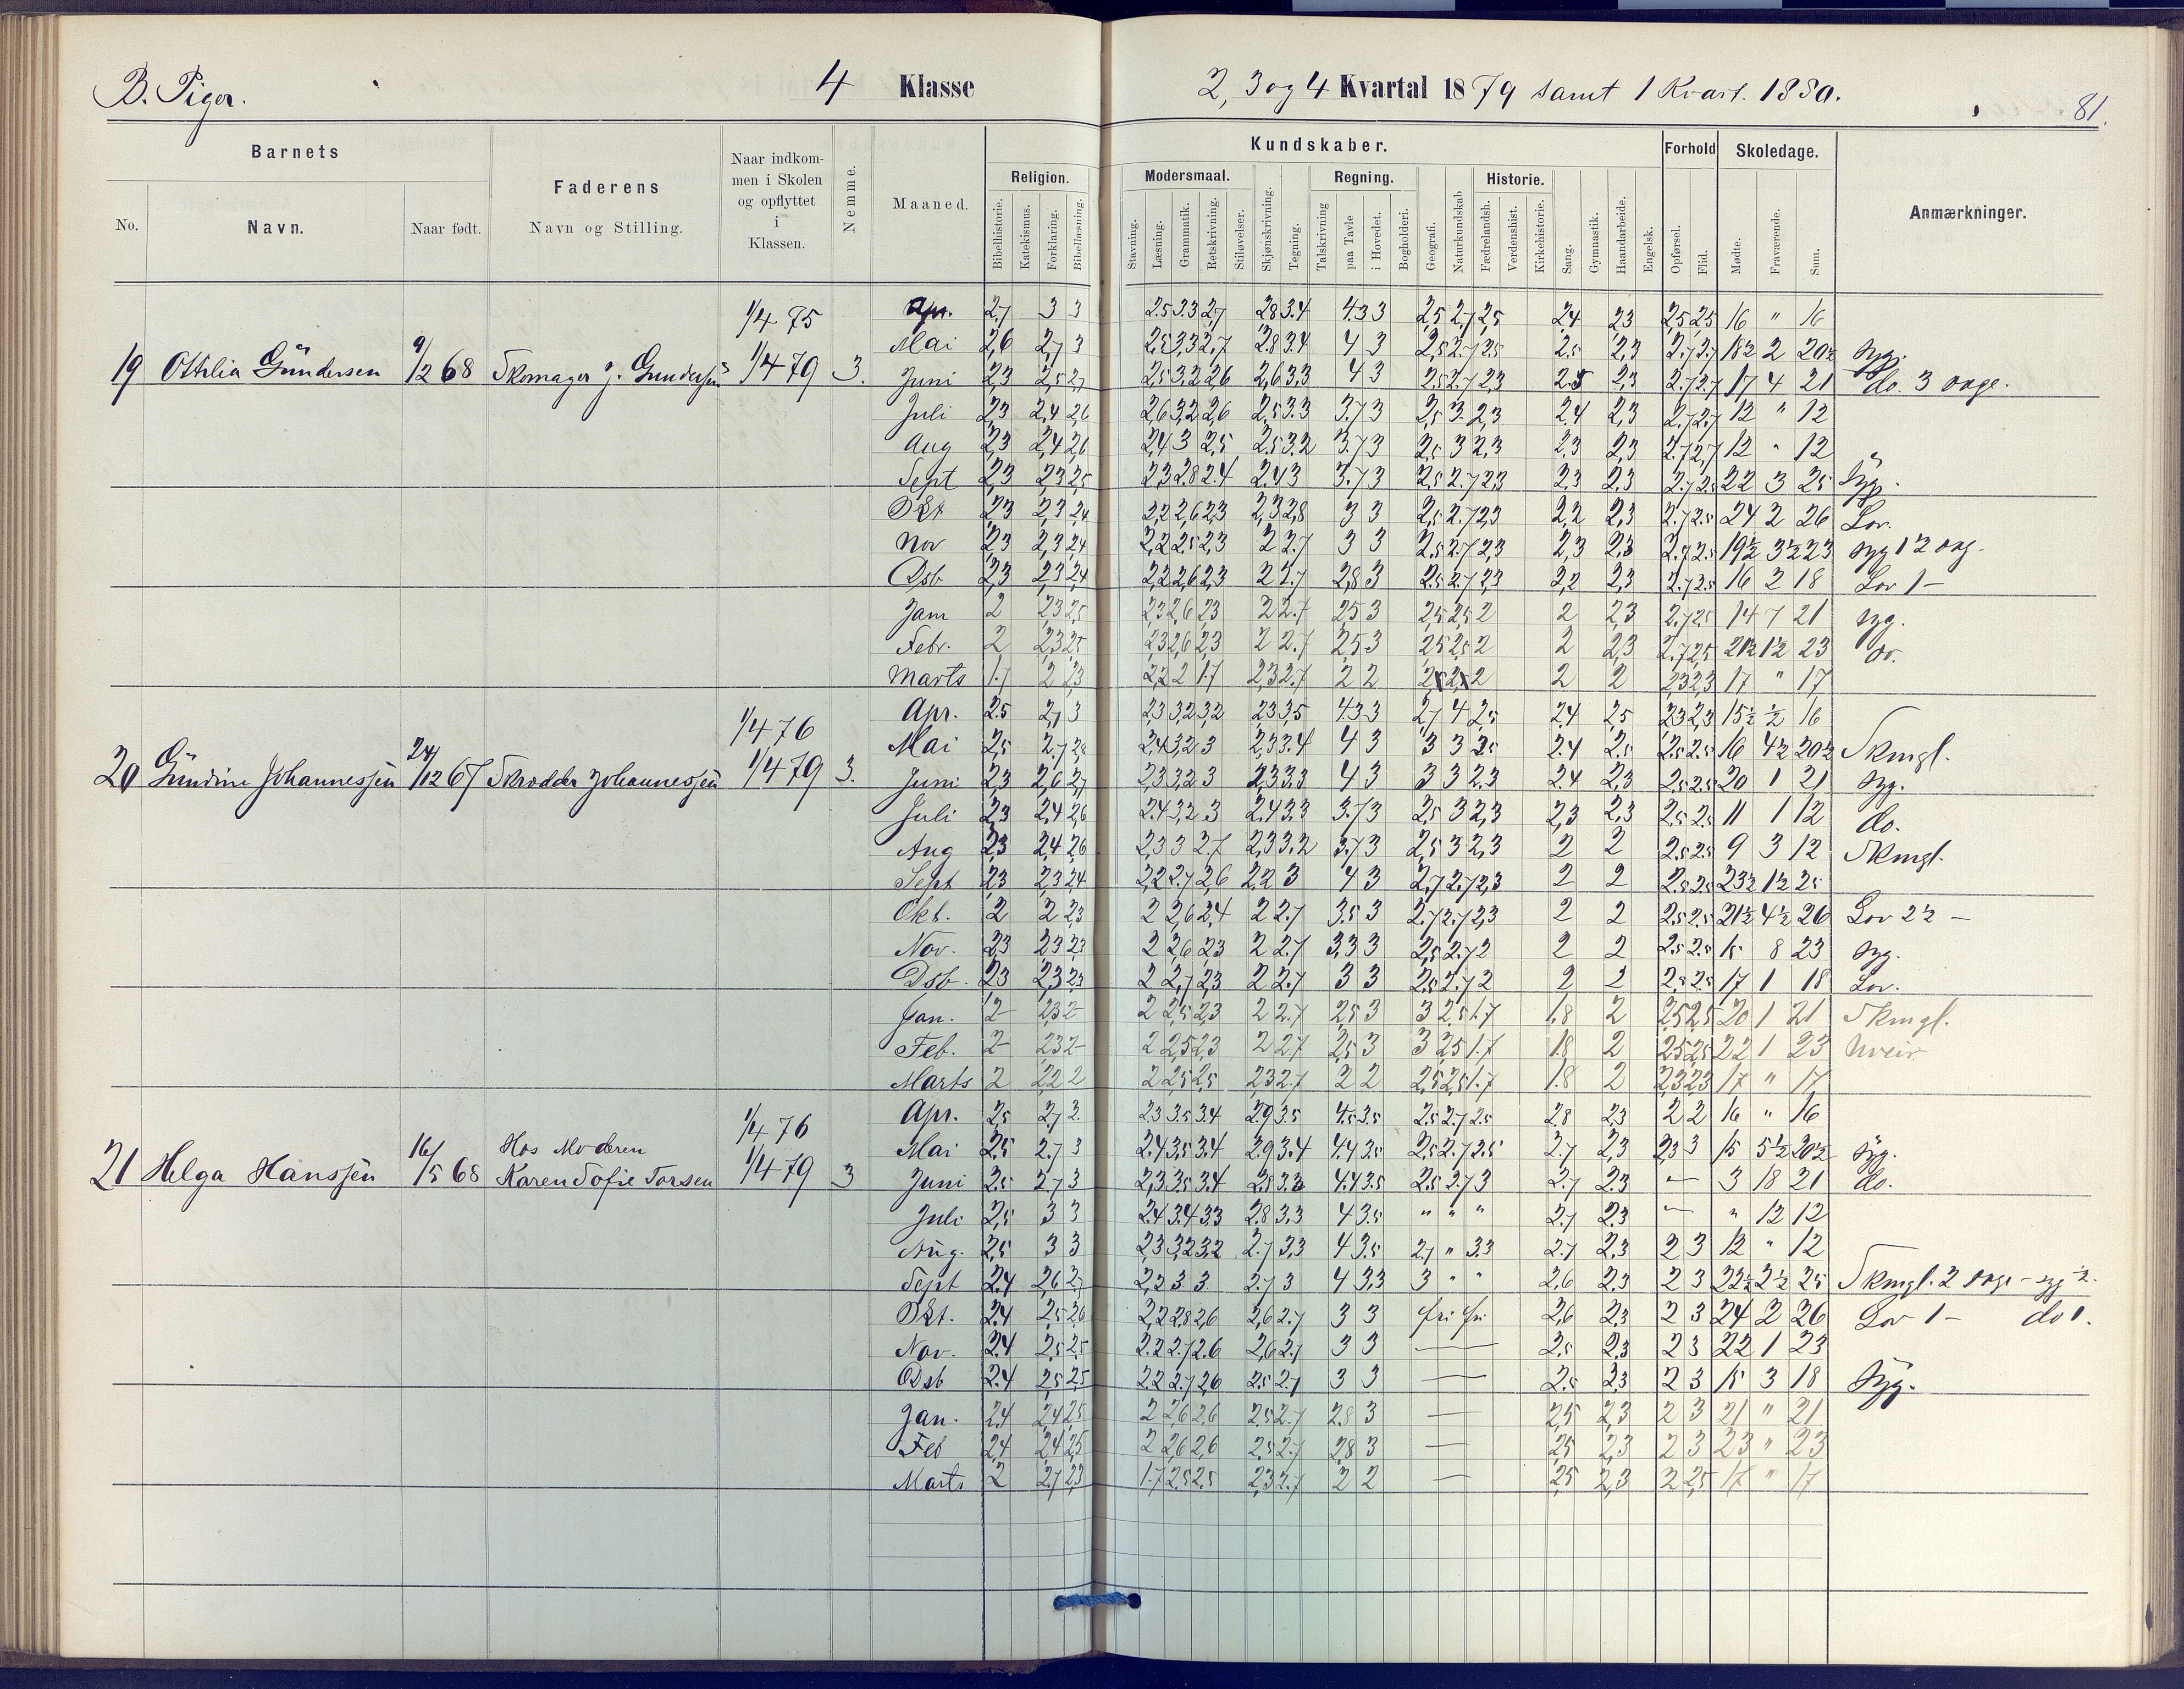 B. Piger.
4 Klasse
2, 3 og 4 Kvartal 1879 samt 1 Kvart. 1880.
81.
Barnets
No.
Navn.
Naar født.
Faderens
Navn og Stilling.
Naar indkom-
men i Skolen
og opflyttet
i
Klassen.
Nemme.
Maaned.
Kundskaber.
Religion.
Bibelhistorie.
Katekismus.
Forklaring.
Bibellæsning.
Modersmaal.
Stavning.
Læsning.
Grammatik.
Retskrivning.
Stiløvelser.
Skjønskrivning.
Tegning.
Regning.
Talskrivning
paa Tavle
i Hovedet.
Bogholderi.
Geografi.
Naturkundskab
Historie.
Fædrelandsh.
Verdenshist.
Kirkehistorie.
Sang.
Gymnastik.
Haandarbeide.
Engelsk.
Forhold
Opførsel.
Flid.
Skoledage.
Mødte.
Fraværende.
Sum.
Anmærkninger.
1/4 75
19 Othilia Gundersen 9/12 68 Skomager J. Gundersen 1/4 79 3.
Apr. 2,7 3 3 2.5 3.3 2,7 2.8 3.4 4.3 3 2,5 2,7 2,5 2,4 2,3 2,5 2,5 16 " 16
Mai 2,6 2,7 3 2,5 3,3 2,7 2.8 3.4 4 3 2,5 2.7 2.5 2.5 2,3 2.7 2.7 18½ 2 20½ syg.
Juni 2,3 2,5 2,7 2.5 3,2 2,6 2,6 3,3 4 3 2,5 2.7 2,3 2.5 2,3 2.7 2.7 17 4 21 do. 3 dage.
Juli 2,3 2,4 2,6 2,6 3,2 2,6 2,5 3.3 3.7 3 2,5 3 2,3 2.4 2,3 2.7 2,7 12 " 12
Aug 2,3 2,4 2,6 2,4 3 2,5 2.5 3.2 3.7 3 2,5 3 2,3 2,3 2,3 2.7 2,7 12 " 12
Sept 2,3 2,3 2,5 2,3 2.8 2.4 2.4 3 3.7 3 2,5 2.7 2,3 2,3 2.3 2.7 2.5 22 3 25 Syg.
Okt 2,3 2,3 2,4 2,2 2,6 2,3 2,3 2,8 3 3 2,5 2.7 2,3 2,2 2,3 2.7 2.5 24 2 26 Lov.
Nov 2,3 2,3 2,4 2,2 2.5 2,3 2 2.7 3 3 2.5 2.7 2,3 2,3 2,3 2.7 2.5 19½ 3½ 23 syg 1½ dag.
Dsb 2,3 2,3 2,4 2,2 2,6 2,3 2 2.7 2,8 3 2.5 2.7 2,3 2,2 2,3 2.7 2.5 16 2 18 Lov 1 -
Jan 2 2,3 2,5 2,3 2,6 2,3 2 2.7 2,5 3 2,5 2,5 2 2 2,3 2.7 2,5 14 7 21 syg.
Febr. 2 2,3 2,5 2,3 2,6 2,3 2 2.7 2,5 3 2,5 2,5 2 2 2,3 2.7 2,5 21½ 1½ 23 do.
Marts 1.7 2 2,3 2,2 2 1.7 2,3 2.7 2 2 2 2 2,3 2,3 17 " 17
1/4 76
20 Gundine Johannessen 24/12 67 Skrædder Johannessen 1/4 79 3.
Apr. 2.5 2,7 3 2,3 3,2 3,2 2,3 3,5 4.3 3 2,7 4 2,5 2,4 2,5 2,3 2,3 15½ ½ 16
Mai 2,5 2.7 2,8 2,4 3,2 3 2,3 3.4 4 3 3 3 2.5 2.4 2.5 2.5 2.5 16 4½ 20½ Skmgl.
Juni 2,3 2,6 2,7 2,3 3,2 3 2,3 3,3 4 3 3 3 2.3 2.4 2,3 2.5 2.5 20 1 21 syg.
Juli 2,3 2,4 2,6 2.4 3,2 3 2.4 3.3 3.7 3 2,5 3 2,3 2,3 2,3 2.5 2.5 11 1 12 do.
Aug 2,3 2,4 2,6 2,3 3 2.7 2,3 3.2 3.7 3 2,5 3 2,3 2 2 2.5 2.5 9 3 12 Skmgl.
Sept 2,3 2,3 2,4 2,2 2.7 2,6 2,2 3 4 3 2,7 2.7 2,3 2 2 2.5 2.5 23½ 1½ 25
Okt. 2 2 2,3 2 2,6 2,4 2 2.7 3.5 3 2.7 2.7 2,3 2 2 2.5 2.5 21½ 4½ 26 Lov 2½ -
Nov. 2,3 2,3 2,3 2 2,6 2,3 2 2.7 3,3 3 2,5 2.7 2 2 2 2.5 2.5 15 8 23 syg.
Dsb. 2,3 2,3 2,3 2 2,7 2,3 2 2.7 3 3 2.5 2.7 2 2 2 2,5 2.5 17 1 18 Lov.
Jan. 2 2,3 2 2 2,5 2,3 2 2.7 2,5 3 3 2,5 1.7 1,8 2 2,5 2,5 20 1 21 Skmgl.
Feb. 2 2,3 2 2 2,5 2,3 2 2.7 2,5 3 3 2,5 1.7 1.8 2 2,5 2,5 22 1 23 Uveir
Marts 2 2,2 2 2 2,5 2,5 2,3 2.7 2 2 2,5 2,5 1.7 1.8 2 2,3 2,3 17 " 17
1/4 76
Hos Moderen
21 Helga Hanssen 16/5 68 Karen Sofie Torsen 1/4 79 3
Apr. 2,5 2,7 3 2.3 3.5 3.4 2.9 3.5 4.5 3.5 2.5 2.7 2.5 2.8 2,3 2 2 16 " 16
Mai 2,5 2.7 3 2.4 3,5 3.4 2.9 3.4 4.4 3.5 2,5 2.7 2.5 2.7 2,3 2,3 3 15 5½ 20½ Syg.
Juni 2.5 2.7 3 2,3 3.5 3.4 4.4 3.5 2.5 2.7 3 2.7 2.3 — 3 18 21 do.
Juli 2,5 3 3 2.4 3.4 3.3 2.8 3,3 4 3.5 " " " 2.7 2.3 — " 12 12
Aug. 2,5 3 3 2,3 3,2 3,2 2.7 3,3 4 3.5 2.7 " 3.3 2.7 2,3 2 3 12 " 12
Sept 2.4 2,6 2,7 2,2 3 3 2.7 3 4 3,3 3 " " 2,6 2,3 2 3 22½ 2½ 25 Skmgl. 2 dage - syg ½.
Okt. 2.4 2,5 2,6 2,2 2,8 2,6 2,6 2.7 3 3 fri fri 2,6 2,3 2 3 24 2 26 Lov 1 - do 1.
Nov. 2.4 2,5 2,5 2.2 2.7 2.6 2,6 2.7 3 3 — 2.5 2,3 2 3 22 1 23
Dsb 2.4 2,5 2,5 2.2 2.7 2,6 2.5 2.7 3 3 — 2.5 2,3 2 3 15 3 18 Syg.
Jan. 2,4 2,4 2,5 2 2,6 2,6 2.5 2.7 2.8 3 — 2,5 2,3 2 3 21 " 21
Feb 2,4 2,4 2,5 2 2,6 2,6 2.5 2.7 2,8 3 — 2,5 2,3 2 3 23 " 23
Marts 2 2,7 2,3 1.7 2.5 2.5 2,3 2.7 2 2 — 2,5 2,3 2 2,5 17 " 17